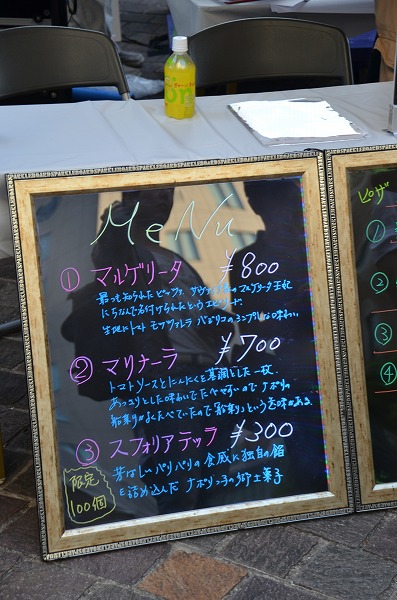 MeNu
① マルゲリータ ¥800
最も知られたピッツァ。サヴォイア家のマルゲリータ王妃
にちなんで名付けられたというエピソード。
生地にトマト モッツァレラ バジリコのシンプルな味わい
② マリナーラ ¥700
トマトソースとにんにくを基調とした一枚。
あっさりとした味わいでたべやすいので ナポリの
船乗りがよくたべていたので「船乗り」という意味がある
③ スフォリアテッラ ¥300
限定
100個
芳ばしいパリパリの食感に独自の餡
を詰め込んだ ナポリっ子の郷土菓子
ピザ
①
②
③
④